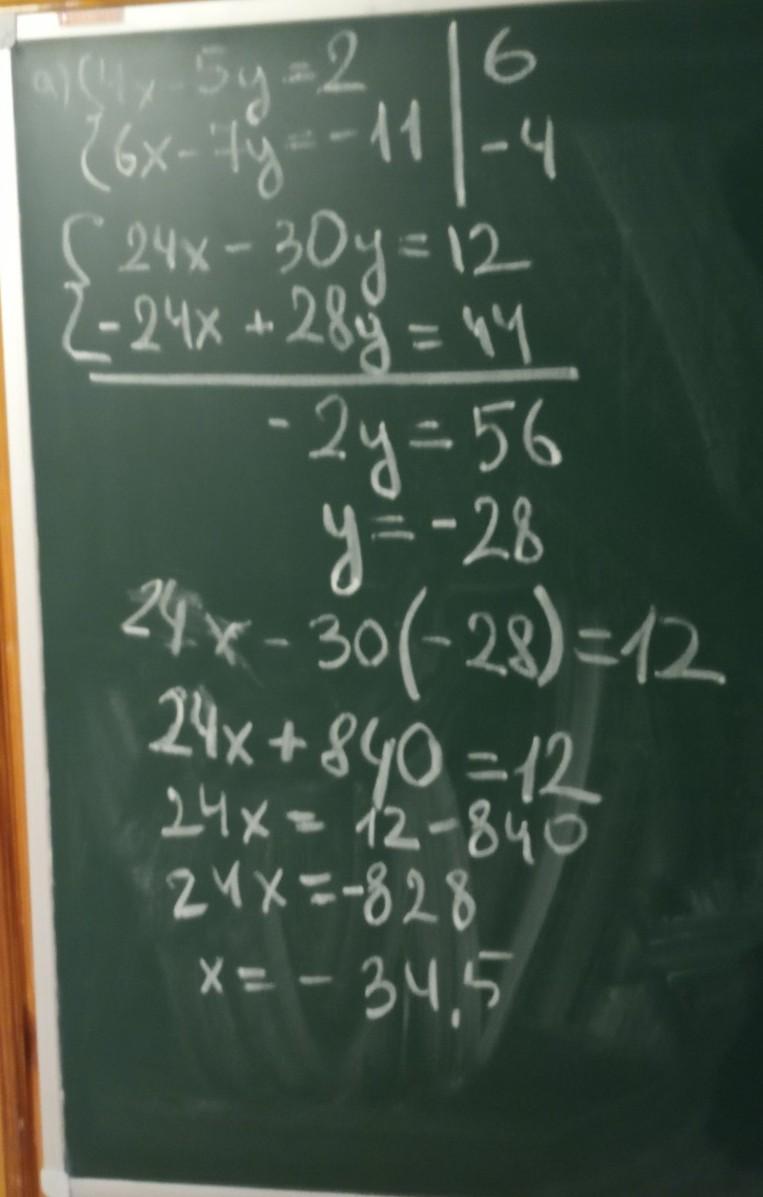 а) { 4x - 5y = 2 | 6
{ 6x - 7y = -11 | -4
{ 24x - 30y = 12
{ -24x + 28y = 44
-2y = 56
y = -28
24x - 30(-28) = 12
24x + 840 = 12
24x = 12 - 840
24x = -828
x = - 34,5